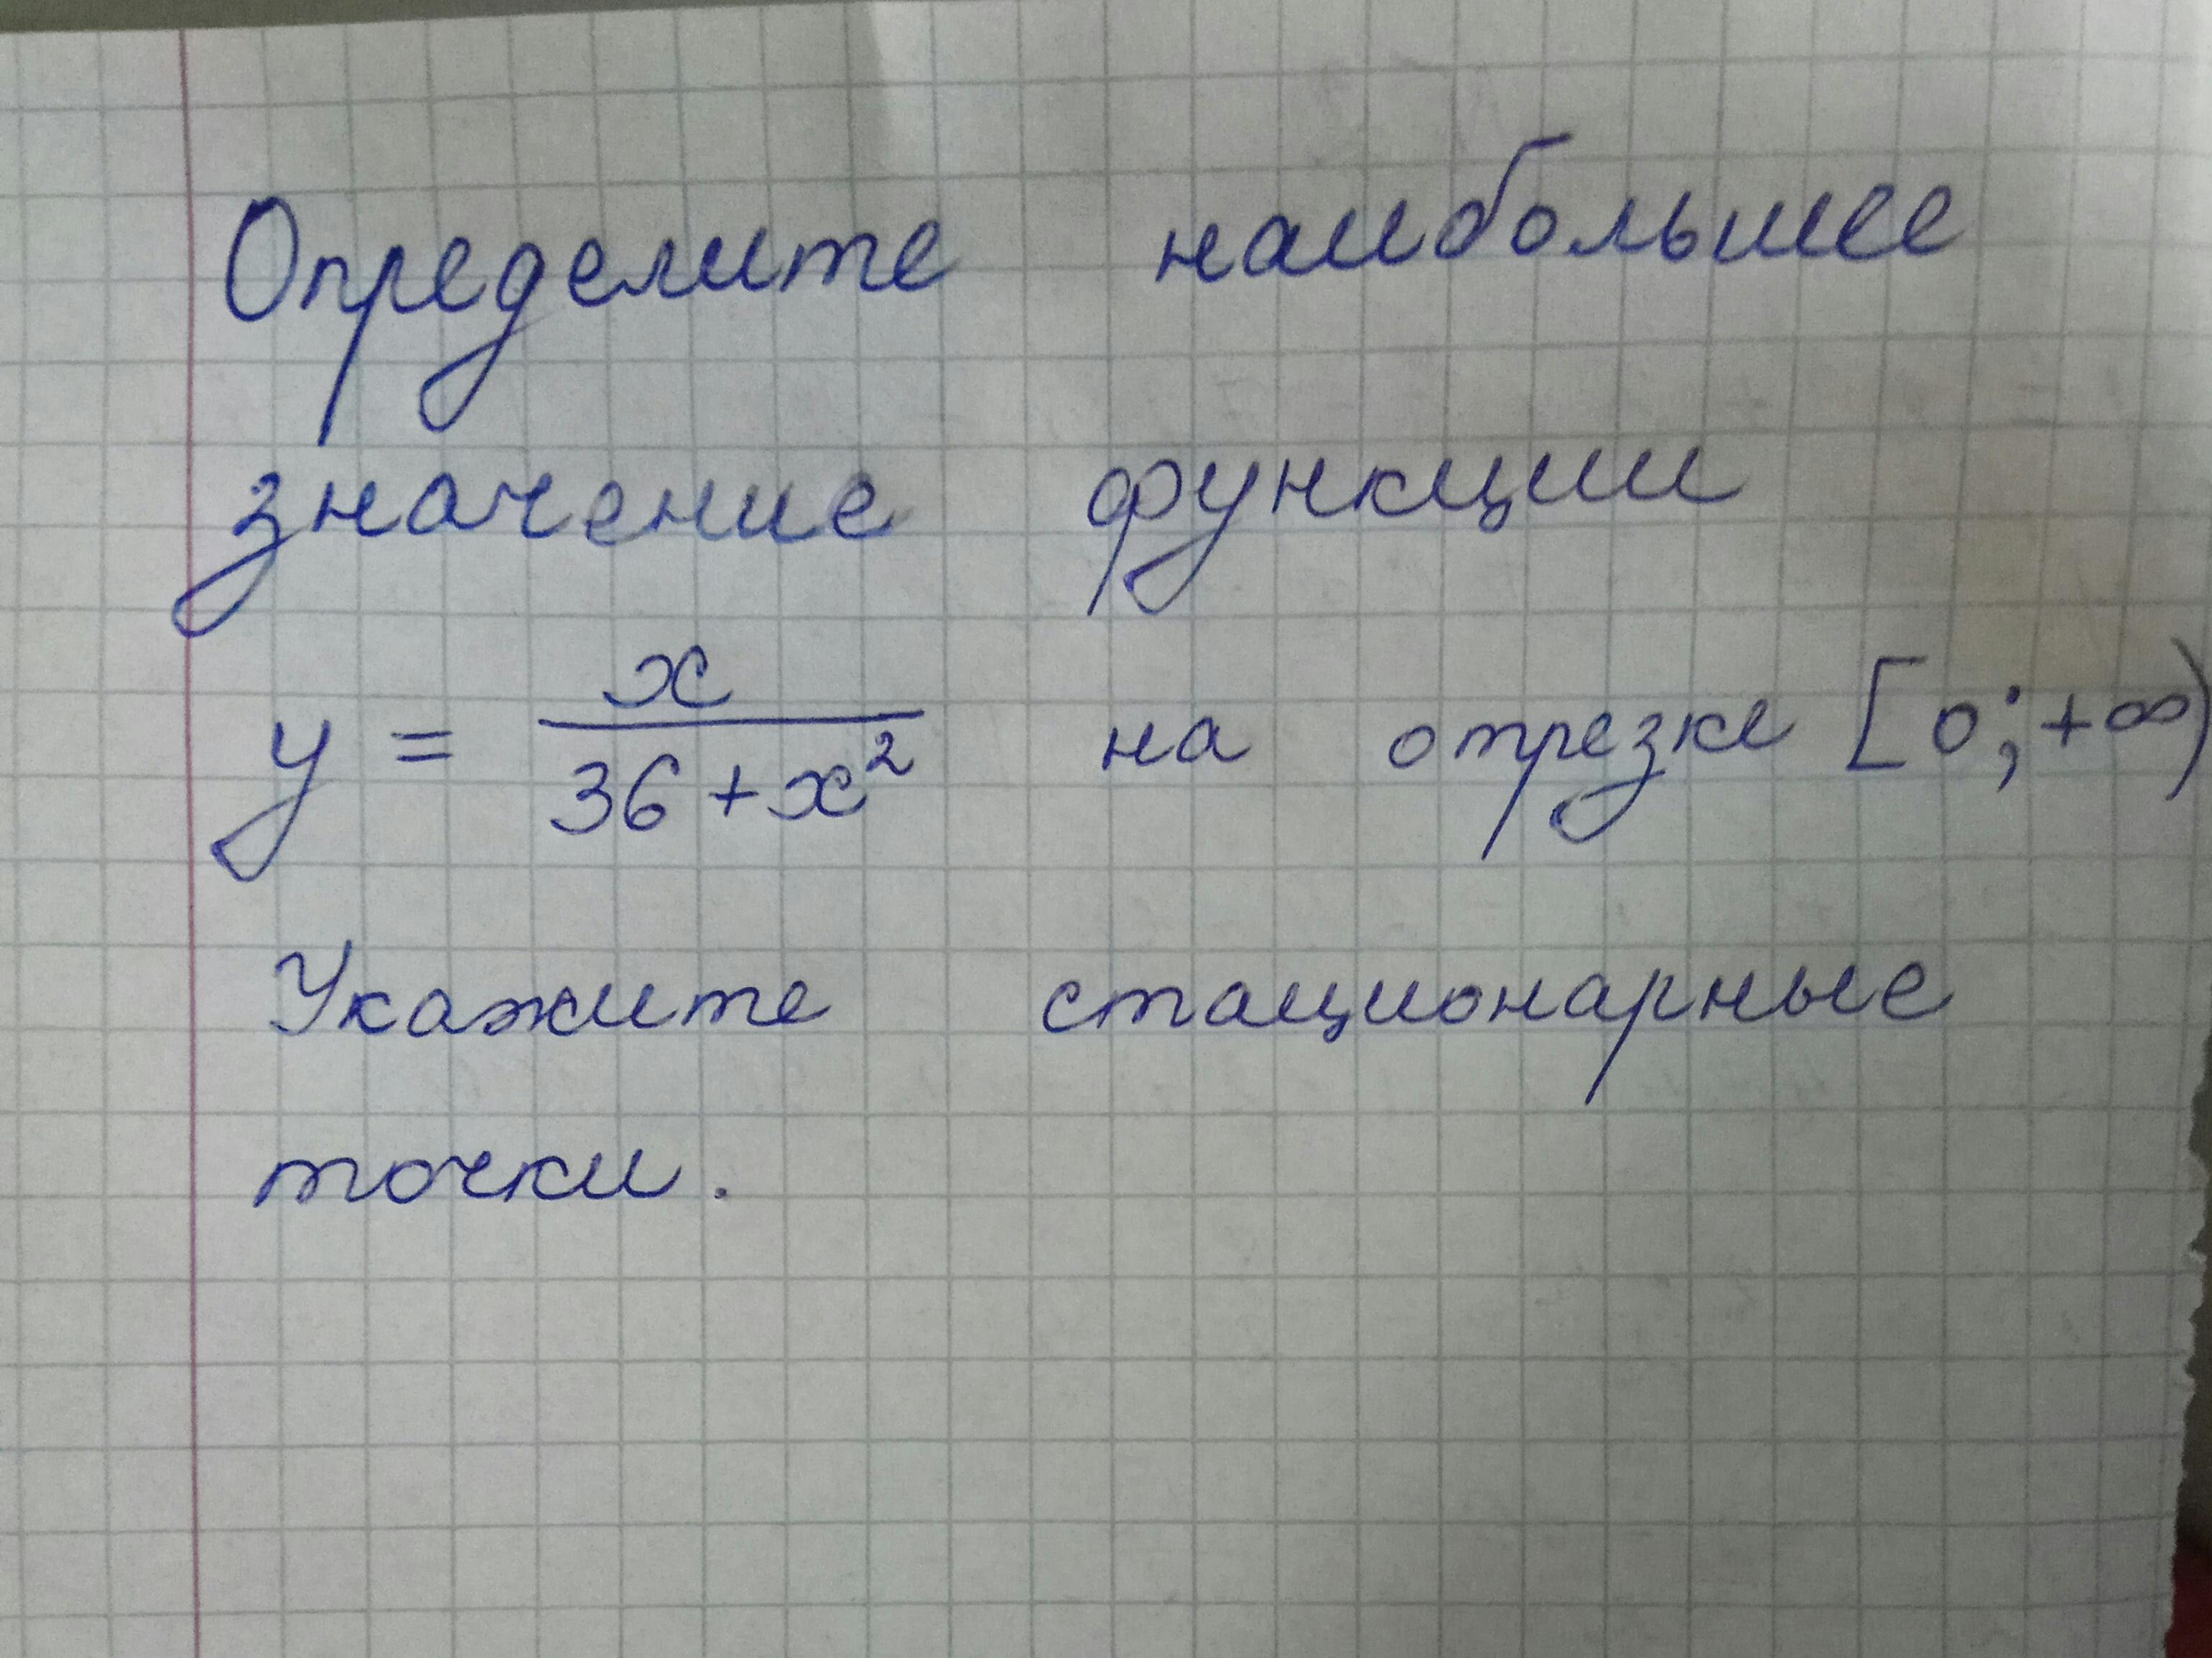 Определите наибольшее
значение функции
y = x/(36+x²) на отрезке [0;+∞)
Укажите стационарные
точки.